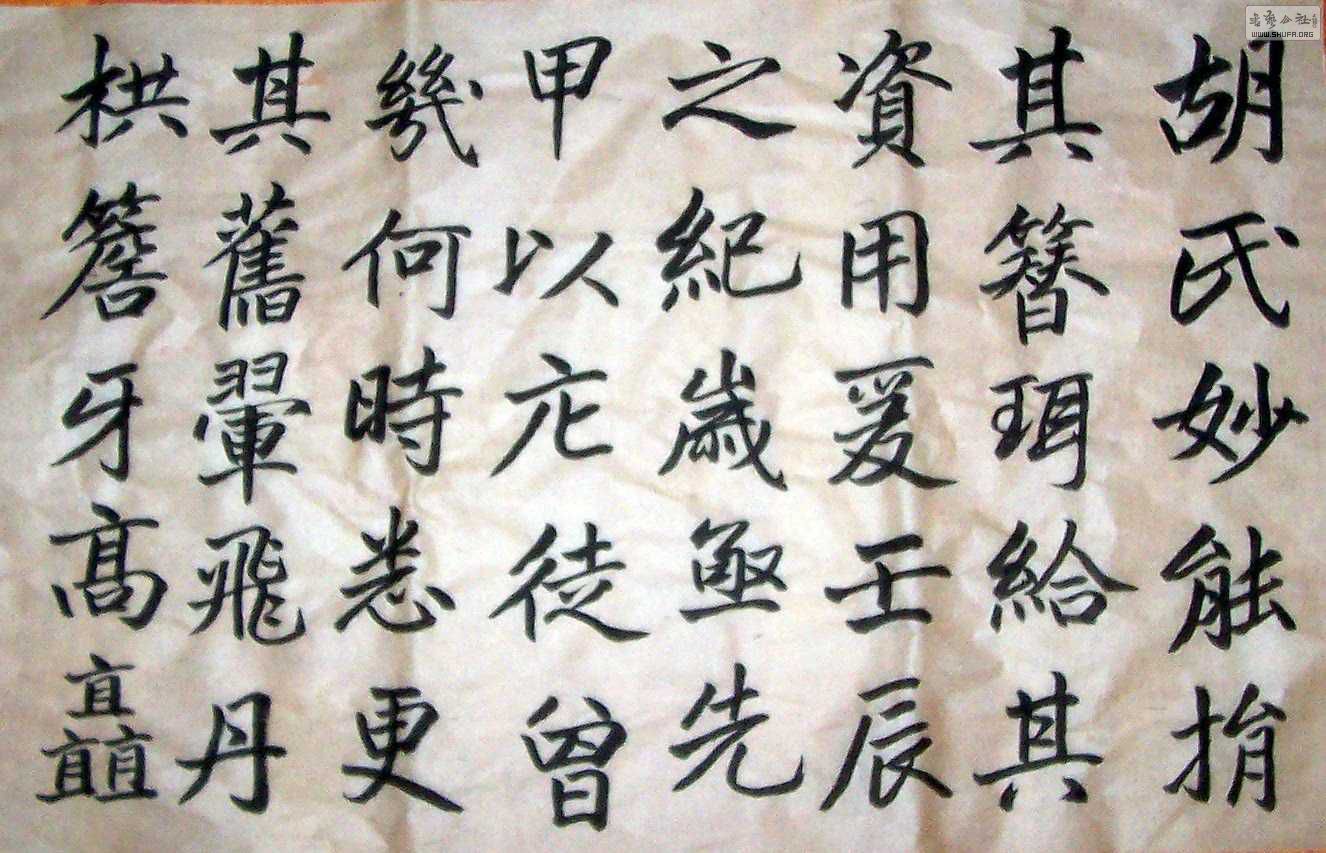 胡氏妙能捐
其簪珥給其
資用爰壬辰
之紀歲亟先
甲以庀徒曾
幾何時悉更
其舊翬飛丹
栱簷牙高矗
WWW.SHUFA.ORG